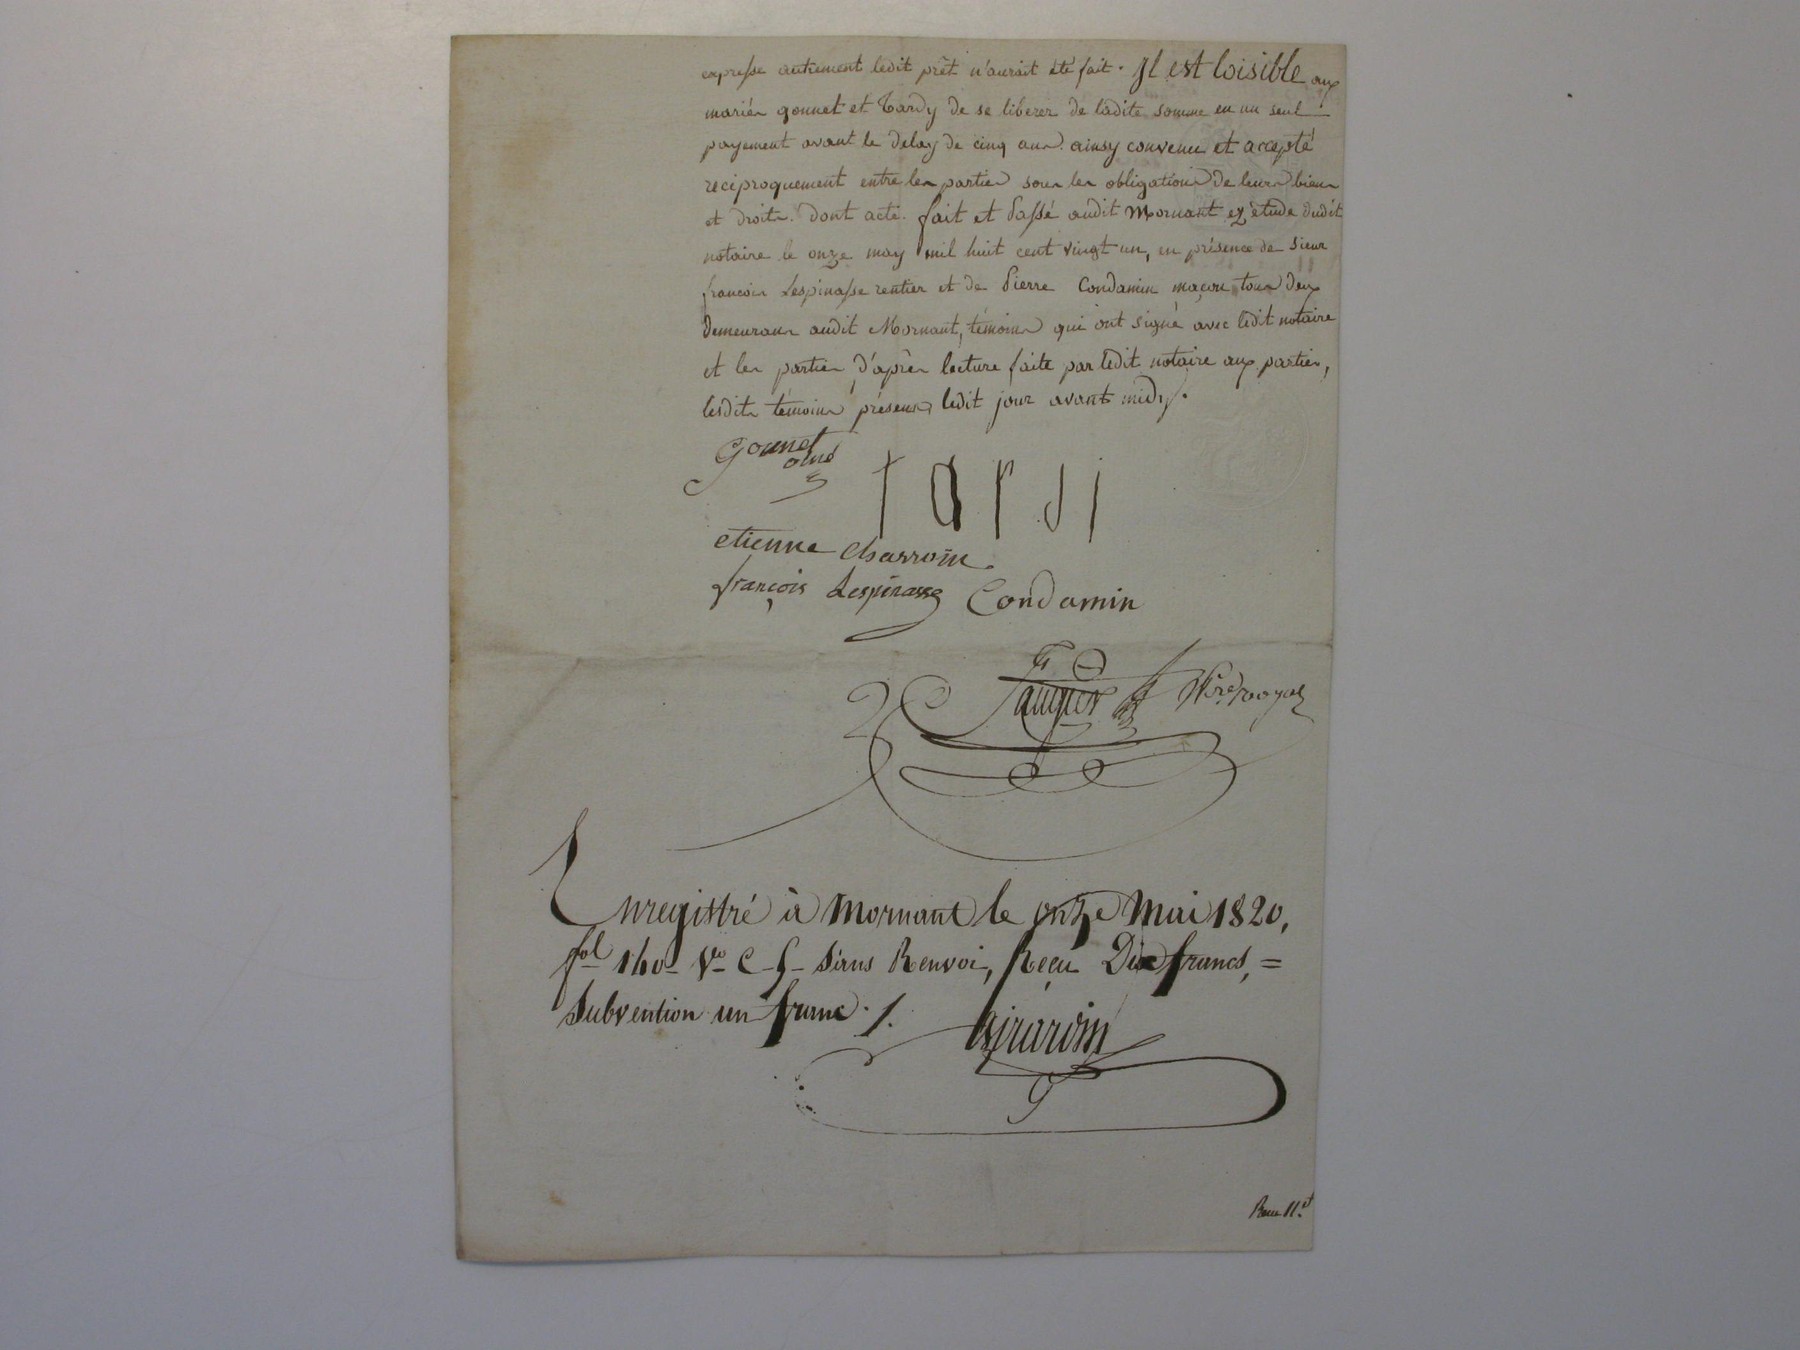 expresse autrement ledit prêt n'aurait été fait. Il est loisible aux
mariés gonnet et Tardy de se libérer de ladite somme en un seul
payement avant le delay de cinq ans. ainsy convenu et accepté
réciproquement entre les parties sous les obligations de leurs biens
et droits. Dont acte. fait et passé audit Mornant ez étude dudit
notaire le onze may mil huit cent vingt un, en présence de sieur
francois Lespinasse rentier et de Pierre Condamin maçon tous deux
demeurans audit Mornant, témoins qui ont signé avec ledit notaire
et les parties, d'après lecture faite par ledit notaire aux parties,
lesdits témoins présens, ledit jour avant midy.
Gonnet
tardi
etienne Charroin
françois Lespinasse Condamin
Nre. royal
Enregistré à Mornant le onze Mai 1820,
fol 160 Vo C 5 Sans Renvoi, Reçu Dix francs, =
Subvention un franc. /.
Girardin